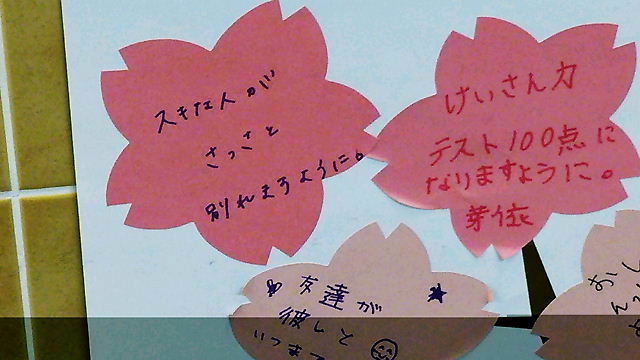 スキな人が
さっさと
別れますように。
けいさん力
テスト100点に
なりますように。
芽依
友達が
彼しと
いつまで
おし